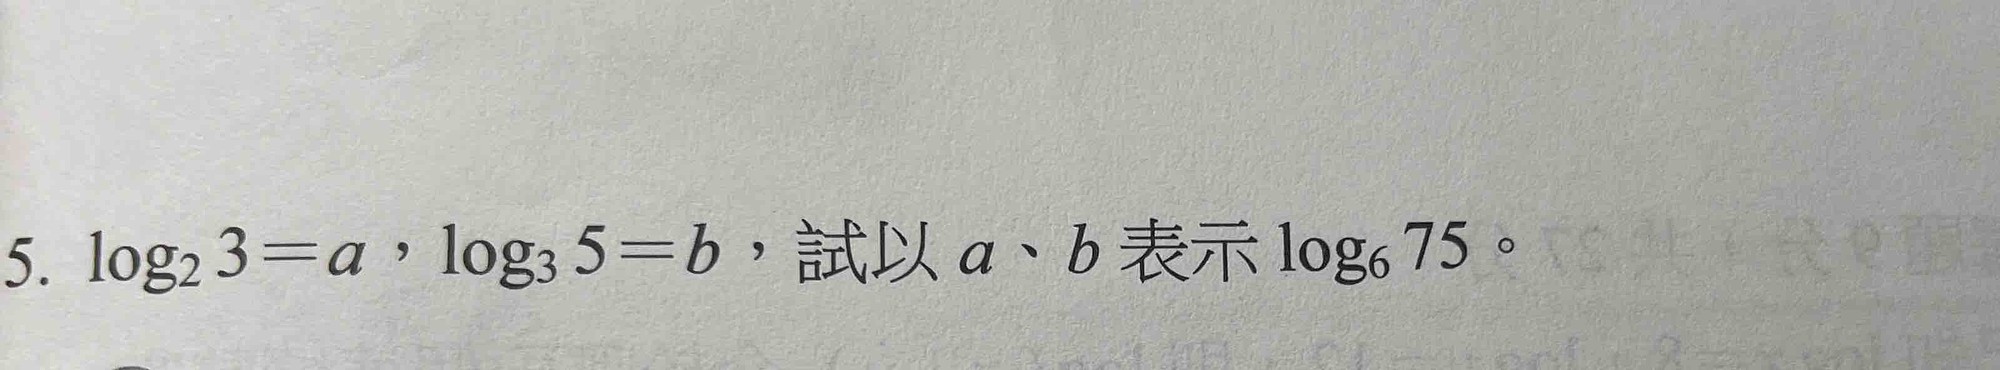 5. log₂ 3＝a，log₃ 5＝b，試以 a、b 表示 log₆ 75。